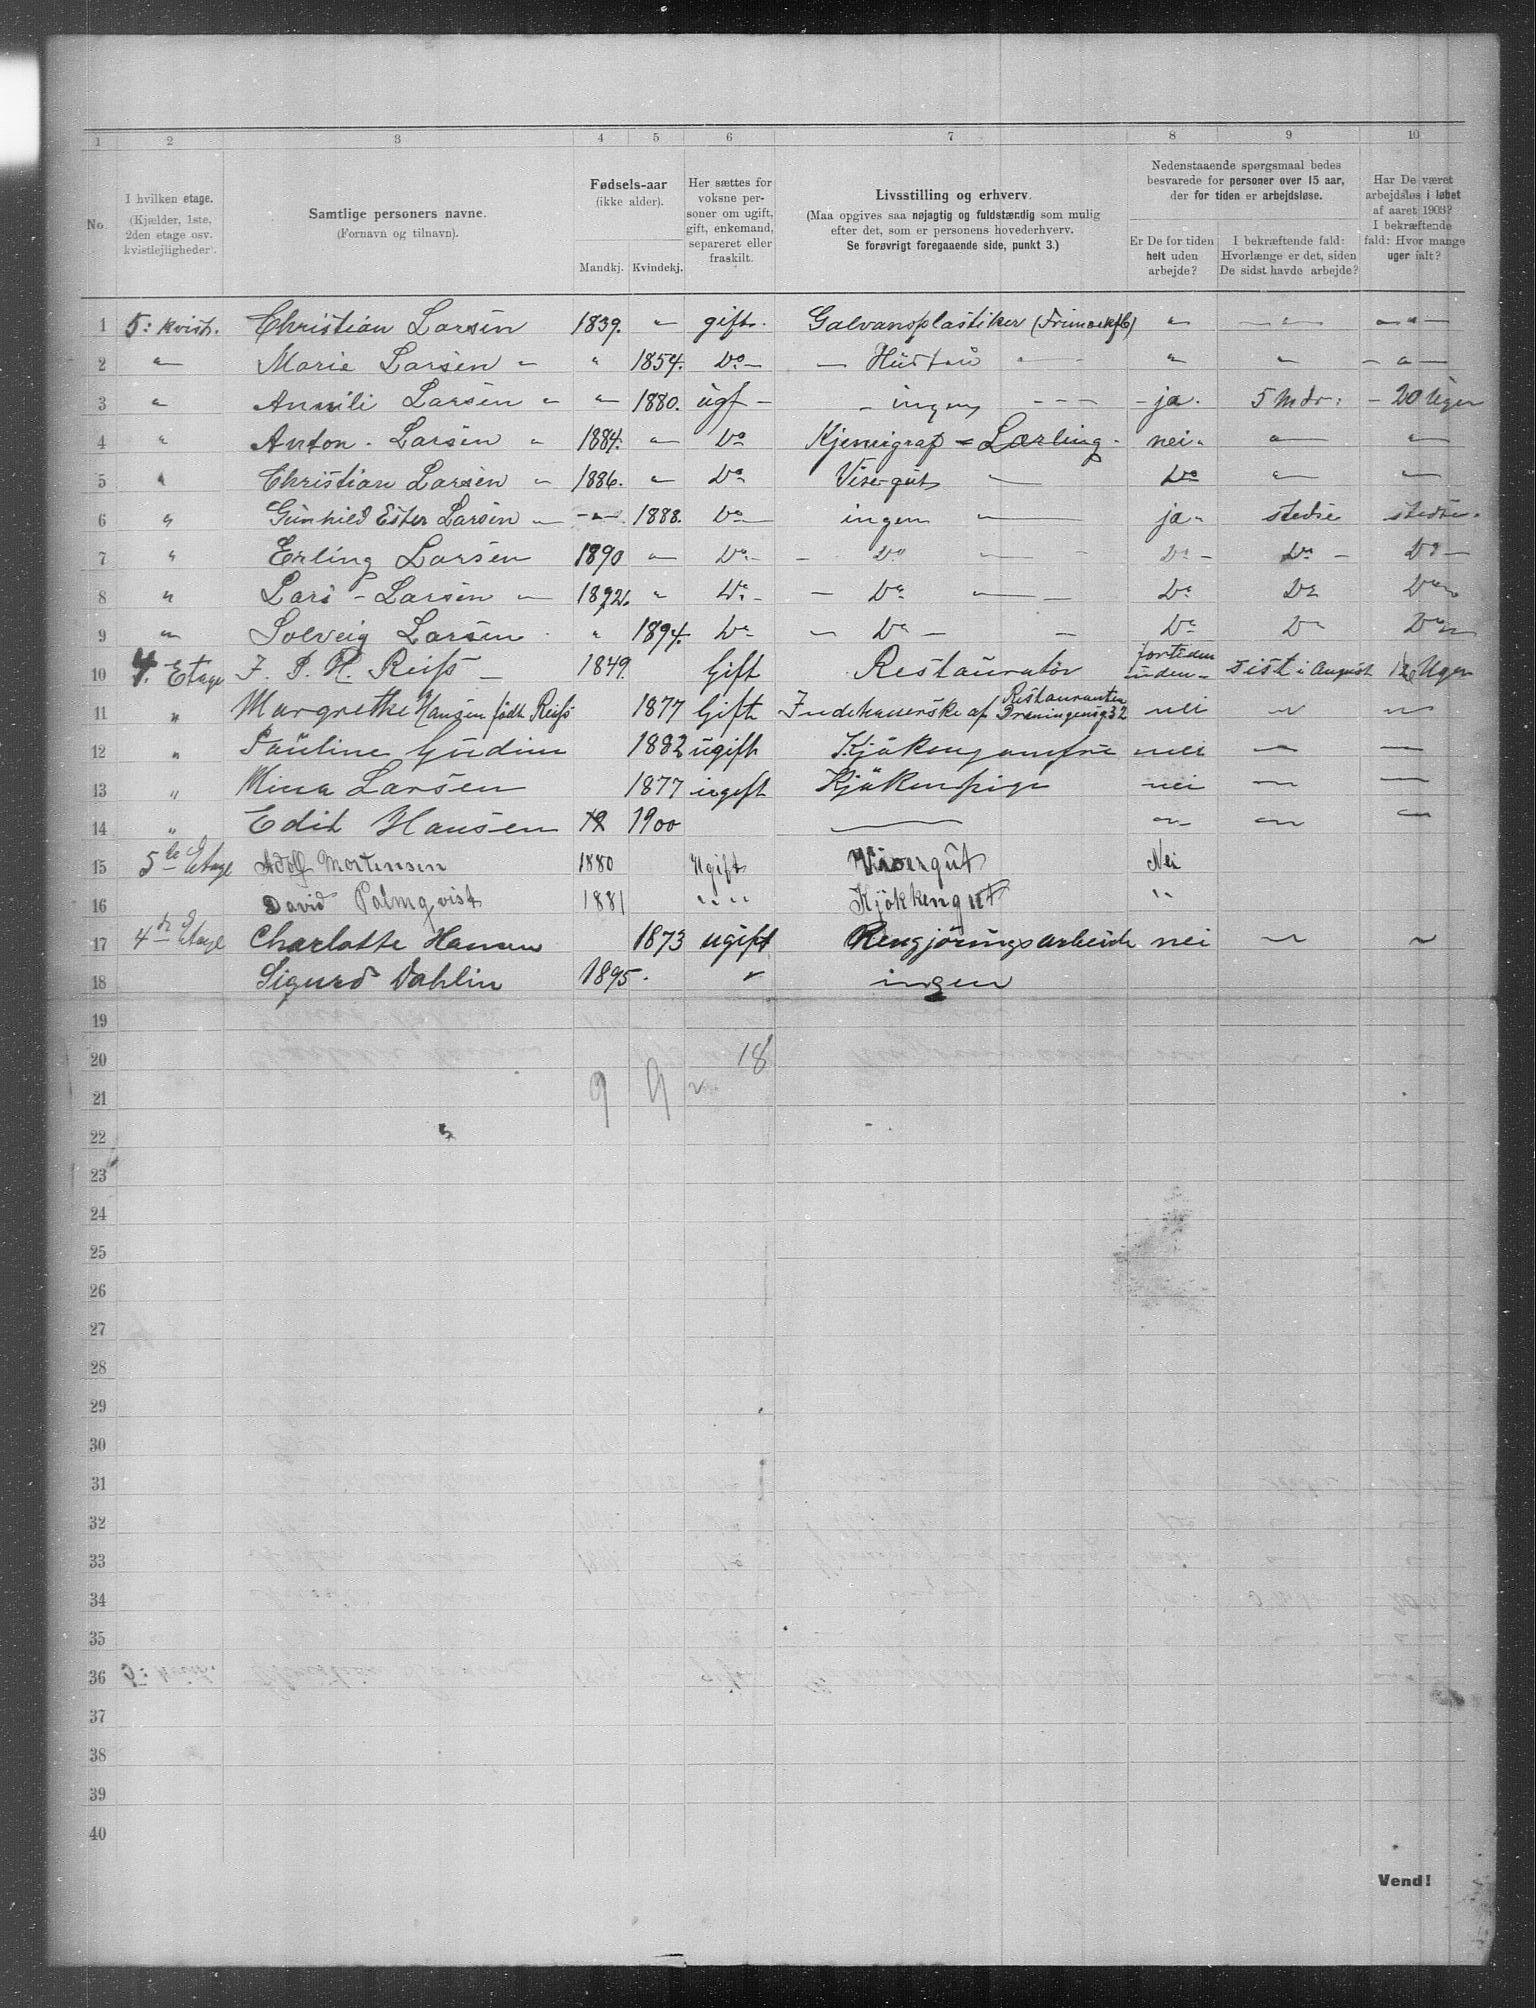 1 2 3 4 5 6 7 8 9 10
No. I hvilken etage. (Kjælder, 1ste, 2den etage osv. kvistlejligheder). Samtlige personers navne. (Fornavn og tilnavn). Fødsels-aar (ikke alder). Mandkj. Kvindekj. Her sættes for voksne personer om ugift, gift, enkemand, separeret eller fraskilt. Livsstilling og erhverv. (Maa opgives saa nøjagtig og fuldstærdig som mulig efter det, som er personens hovederhverv. Se forøvrigt foregaaende side, punkt 3.) Nedenstaaende spørgsmaal bedes besvarede for personer over 15 aar, der for tiden er arbejdsløse. Er De for tiden helt uden arbejde? I bekræftende fald: Hvorlænge er det, siden De sidst havde arbejde? Har De været arbejdsløs i løbet af aaret 1903? I bekræftende fald: Hvor mange uger ialt?
1 5: Kvist. Christian Larsen 1839. " gift. Galvanoplastiker " — " — — " —
2 " Marie Larsen " " 1854. Do — — Hustru " " — " —
3 " Larsen " " 1880. ugf — — ingen - - - - ja. 5 Mdr: — 20 Uger
4 " Anton - Larsen " 1884. " Do Kjemigraf = Lærling - nei " " "
5 " Christian Larsen " 1886. " Do Visergut — Do " "
6 " Gunhild Ester Larsen " - " - 1888. Do — ingen — ja " stedse stedse.
7 " Erling Larsen 1890 " Do — — Do — Do — Do — Do —
8 " Lars - Larsen — 1892. " Do — — Do — Do Do Do
9 " Solveig Larsen " 1894. Do — Do — Do Do Do
10 4. Etage J. P. H. Reiss — 1849. Gift Restauratør fortiden uden — sist i August 12 Uger
11 " Margrethe Hansen født Reiss 1877 Gift Indehaverske af Restauranten Droningensg 32 nei " "
12 " Pauline Gudim 1882 ugift Kjøkenjomfru nei — —
13 " Mina Larsen 1877 ugift Kjøkenpige nei — —
14 " Edit Hansen 1900 — " " "
15 5te Etage Adolf Mortensen 1880 Ugift Visergut Nei
16 David Palmqvist 1881 " " " " Kjøkkengut "
17 4de Etage Charlotte Hansen 1873 ugift Rengjøringsarbeide nei " "
18 Sigurd Dahlin 1895. " ingen
19
20 18
21 9 9
22
23
24
25
26
27
28
29
30
31
32
33
34
35
36
37
38
39
40
Vend!